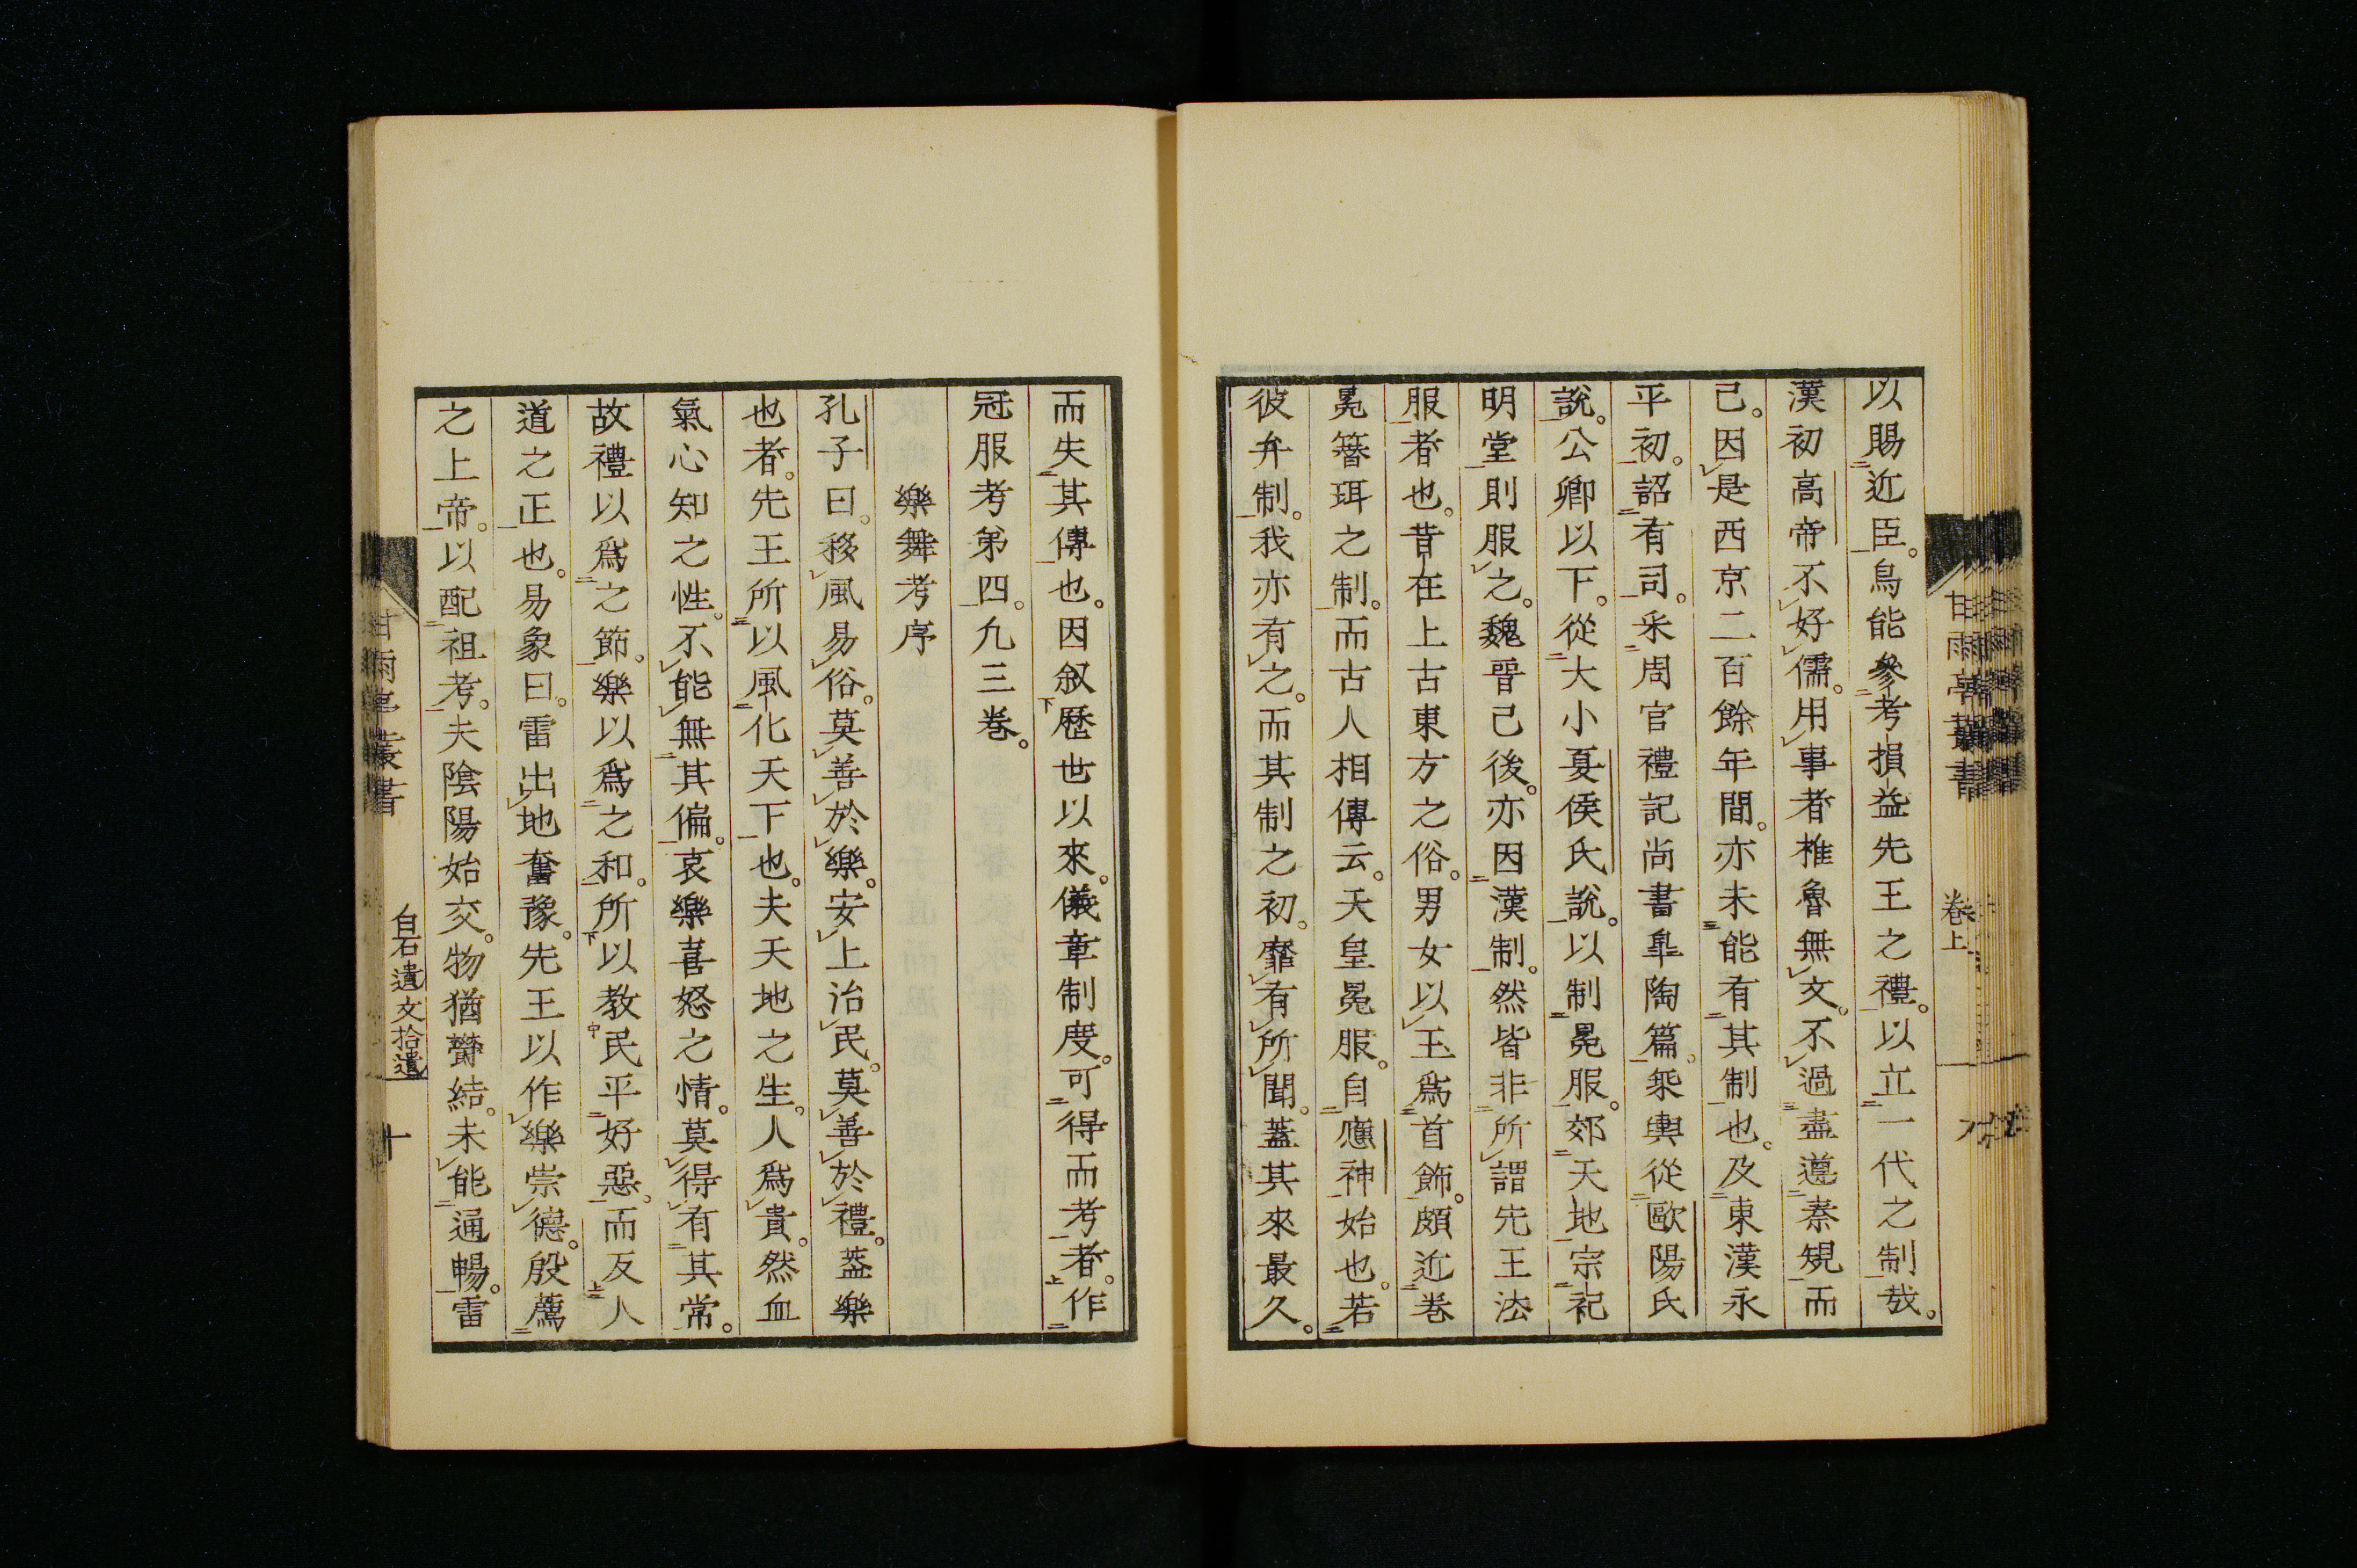 以賜近臣。鳥能參考損益先王之禮。以立一代之制哉。
漢初高帝不好儒。用事者椎魯無文。不過盡遵秦規而
己。因是西京二百餘年間。亦未能有其制也。及東漢永
平初。詔有司。采周官禮記尚書皐陶篇。乘輿從歐陽氏
說。公卿以下。從大小夏侯氏說。以制冕服。郊天地宗祀
明堂則服之。魏晉己後。亦因漢制。然皆非所謂先王法
服者也。昔在上古東方之俗。男女以玉爲首飾。頗近卷
冕簪珥之制。而古人相傳云。天皇冕服。自應神始也。若
彼弁制。我亦有之。而其制之初。靡有所聞。蓋其來最久。
而失其傳也。因叙歷世以來。儀章制度。可得而考者。作
冠服考第四。凡三卷。
樂舞考序
孔子曰。移風易俗。莫善於樂。安上治民。莫善於禮。蓋樂
也者。先王所以風化天下也。夫天地之生。人爲貴。然血
氣心知之性。不能無其偏。哀樂喜怒之情。莫得有其常。
故禮以爲之節。樂以爲之和。所以教民平好惡。而反人
道之正也。易象曰。雷出地奮豫。先王以作樂崇德。殷薦
之上帝。以配祖考。夫陰陽始交。物猶鬱結。未能通暢。雷
甘雨亭叢書
卷上
甘雨亭叢書
白石遺文拾遺
十